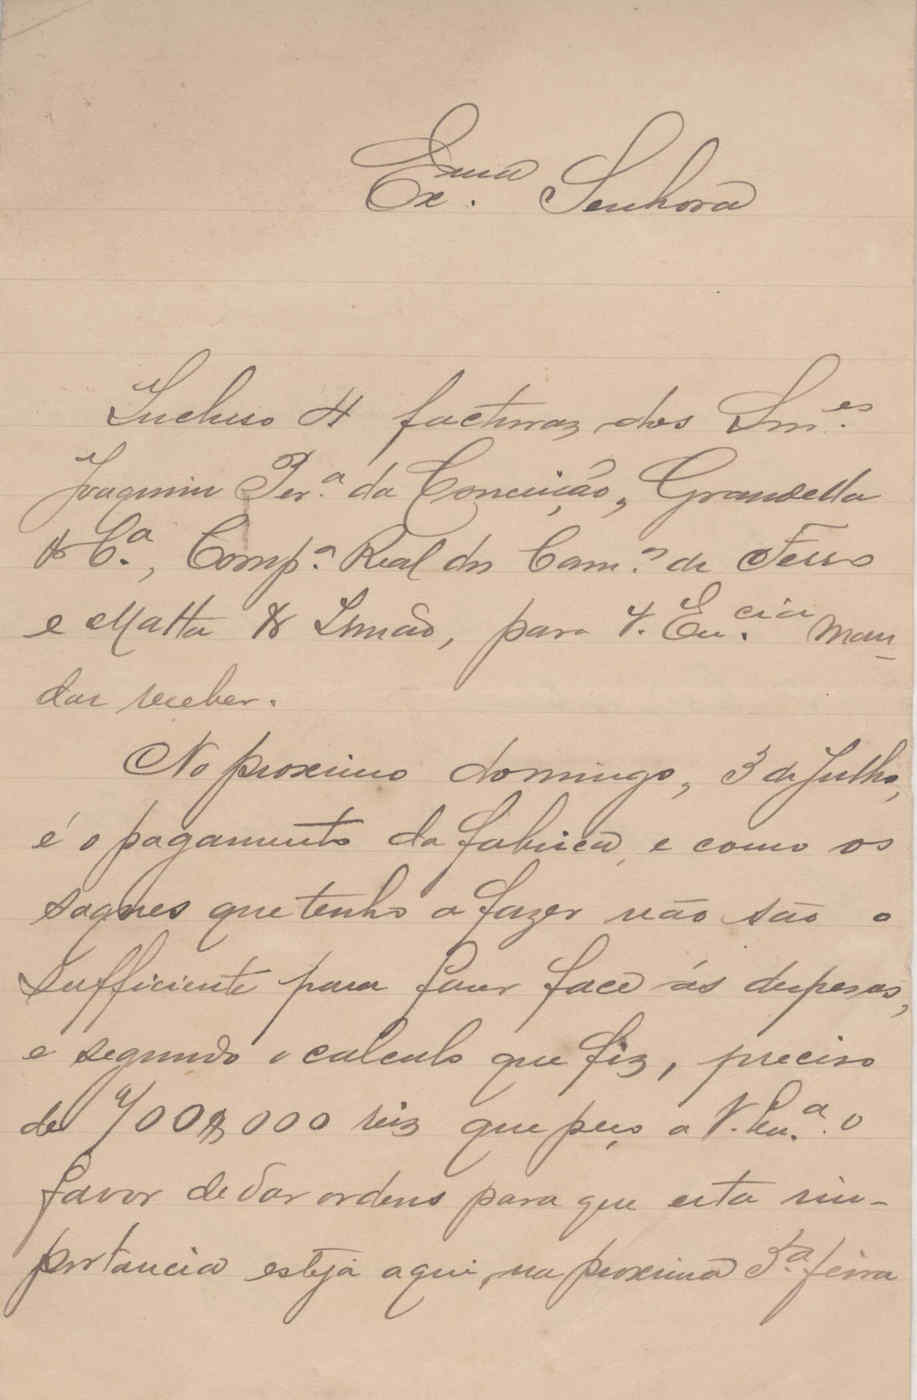 Exma. Senhora
Incluso 4 facturas dos Snres.
Joaquim Per.a da Conceição, Grandella
& C.a, Comp.a Real dos Cam.os de Ferro
e Matta & Irmão, para V. Ex.cia man-
dar receber.
No proximo domingo, 3 de Julho,
é o pagamento da fabrica, e como os
saques que tenho a fazer não são o
sufficiente para fazer face ás despesas,
e segundo o calculo que fiz, preciso
de 400$000 reis que peço a V. Ex.a o
favor de dar ordens para que esta im-
portancia esteja aqui, na proxima 5.a feira